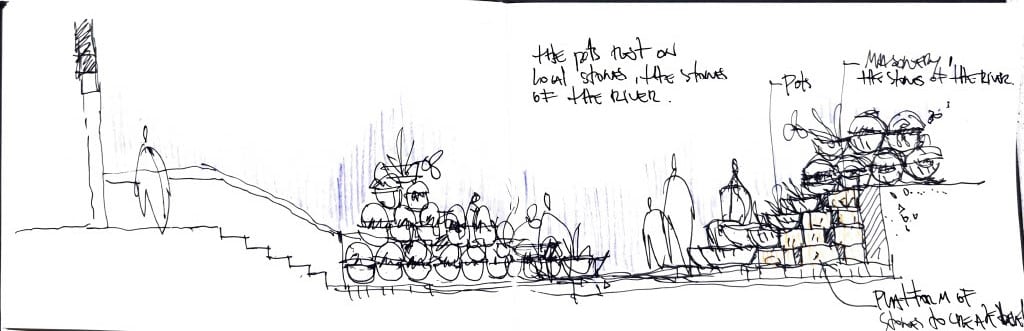 THE POTS REST ON
LOCAL STONES, THE STONES
OF THE RIVER.
POTS
MASONERY,
THE STONES OF THE RIVER.
PLATFORM OF
STONES TO CREATE